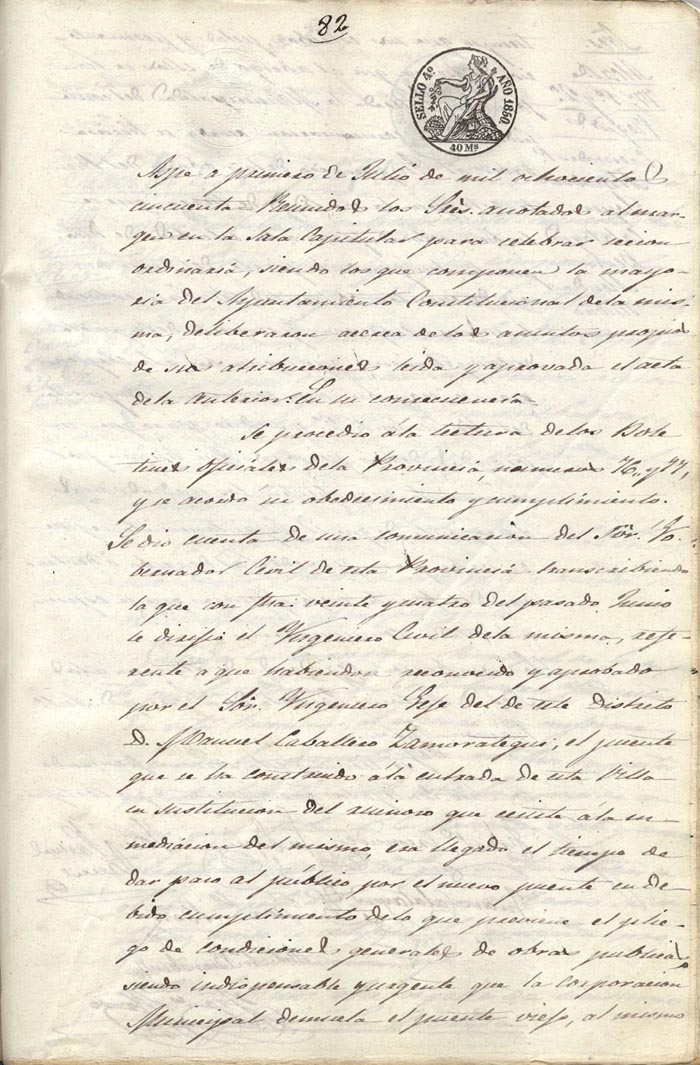 82
SELLO 4º AÑO 1850.
40 Ms
Aspe a primero de Julio de mil ochociento
cincuenta Reunidos los Sres. anotados al mar-
gen en la Sala Capitular para celebrar secion
ordinaria, siendo los que componen la mayo-
ria del Ayuntamiento Constitucional de la mis-
ma, deliberaron acerca de los asuntos propios
de sus atribuciones leida y aprovada el acta
de la anterior. En su consecuencia
Se procedio á la lectura de los Bole
tines oficiales de la Provincia, numeros 76,, y 77,
y se acordo su obedecimiento y cumplimiento.
Se dio cuenta de una comunicacion del Sor. Go-
bernador Civil de esta Provincia transcribiendo
la que con fha. veinte y cuatro del pasado Junio
le dirijia el Yngeniero Civil de la misma, refe-
rente a que habiendose reconocido y aprobado
por el Sor. Yngeniero Gefe del de este Distrito
D. Manuel Caballero Zamorategui, el puente
que se ha construido á la entrada de esta Villa
en sustitucion del ruinoso que ecsiste á la in-
mediacion del mismo, era llegado el tiempo de
dar paso al público por el nuevo puente en de-
bido cumplimiento de lo que previene el plie-
go de condiciones generales de obras publicas
siendo indispensable y urgente que la corporacion
Municipal demuela el puente viejo, al mismo